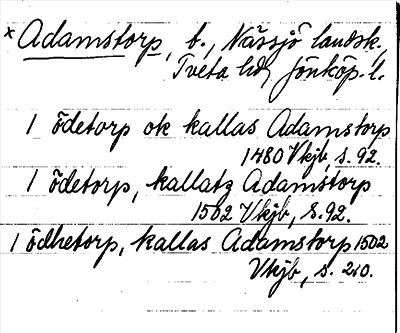 × Adamstorp, t., Nässjö landsk.,
Tveta hd, Jönköp. l.
1 ödetorp ok kallas Adamstorp
1480 Vkjb, s. 92.
1 ödetorp, kallatz Adamstorp
1502 Vkjb, s. 92.
1 ödhetorp, kallas Adamstorp 1502
Vkjb, s. 210.